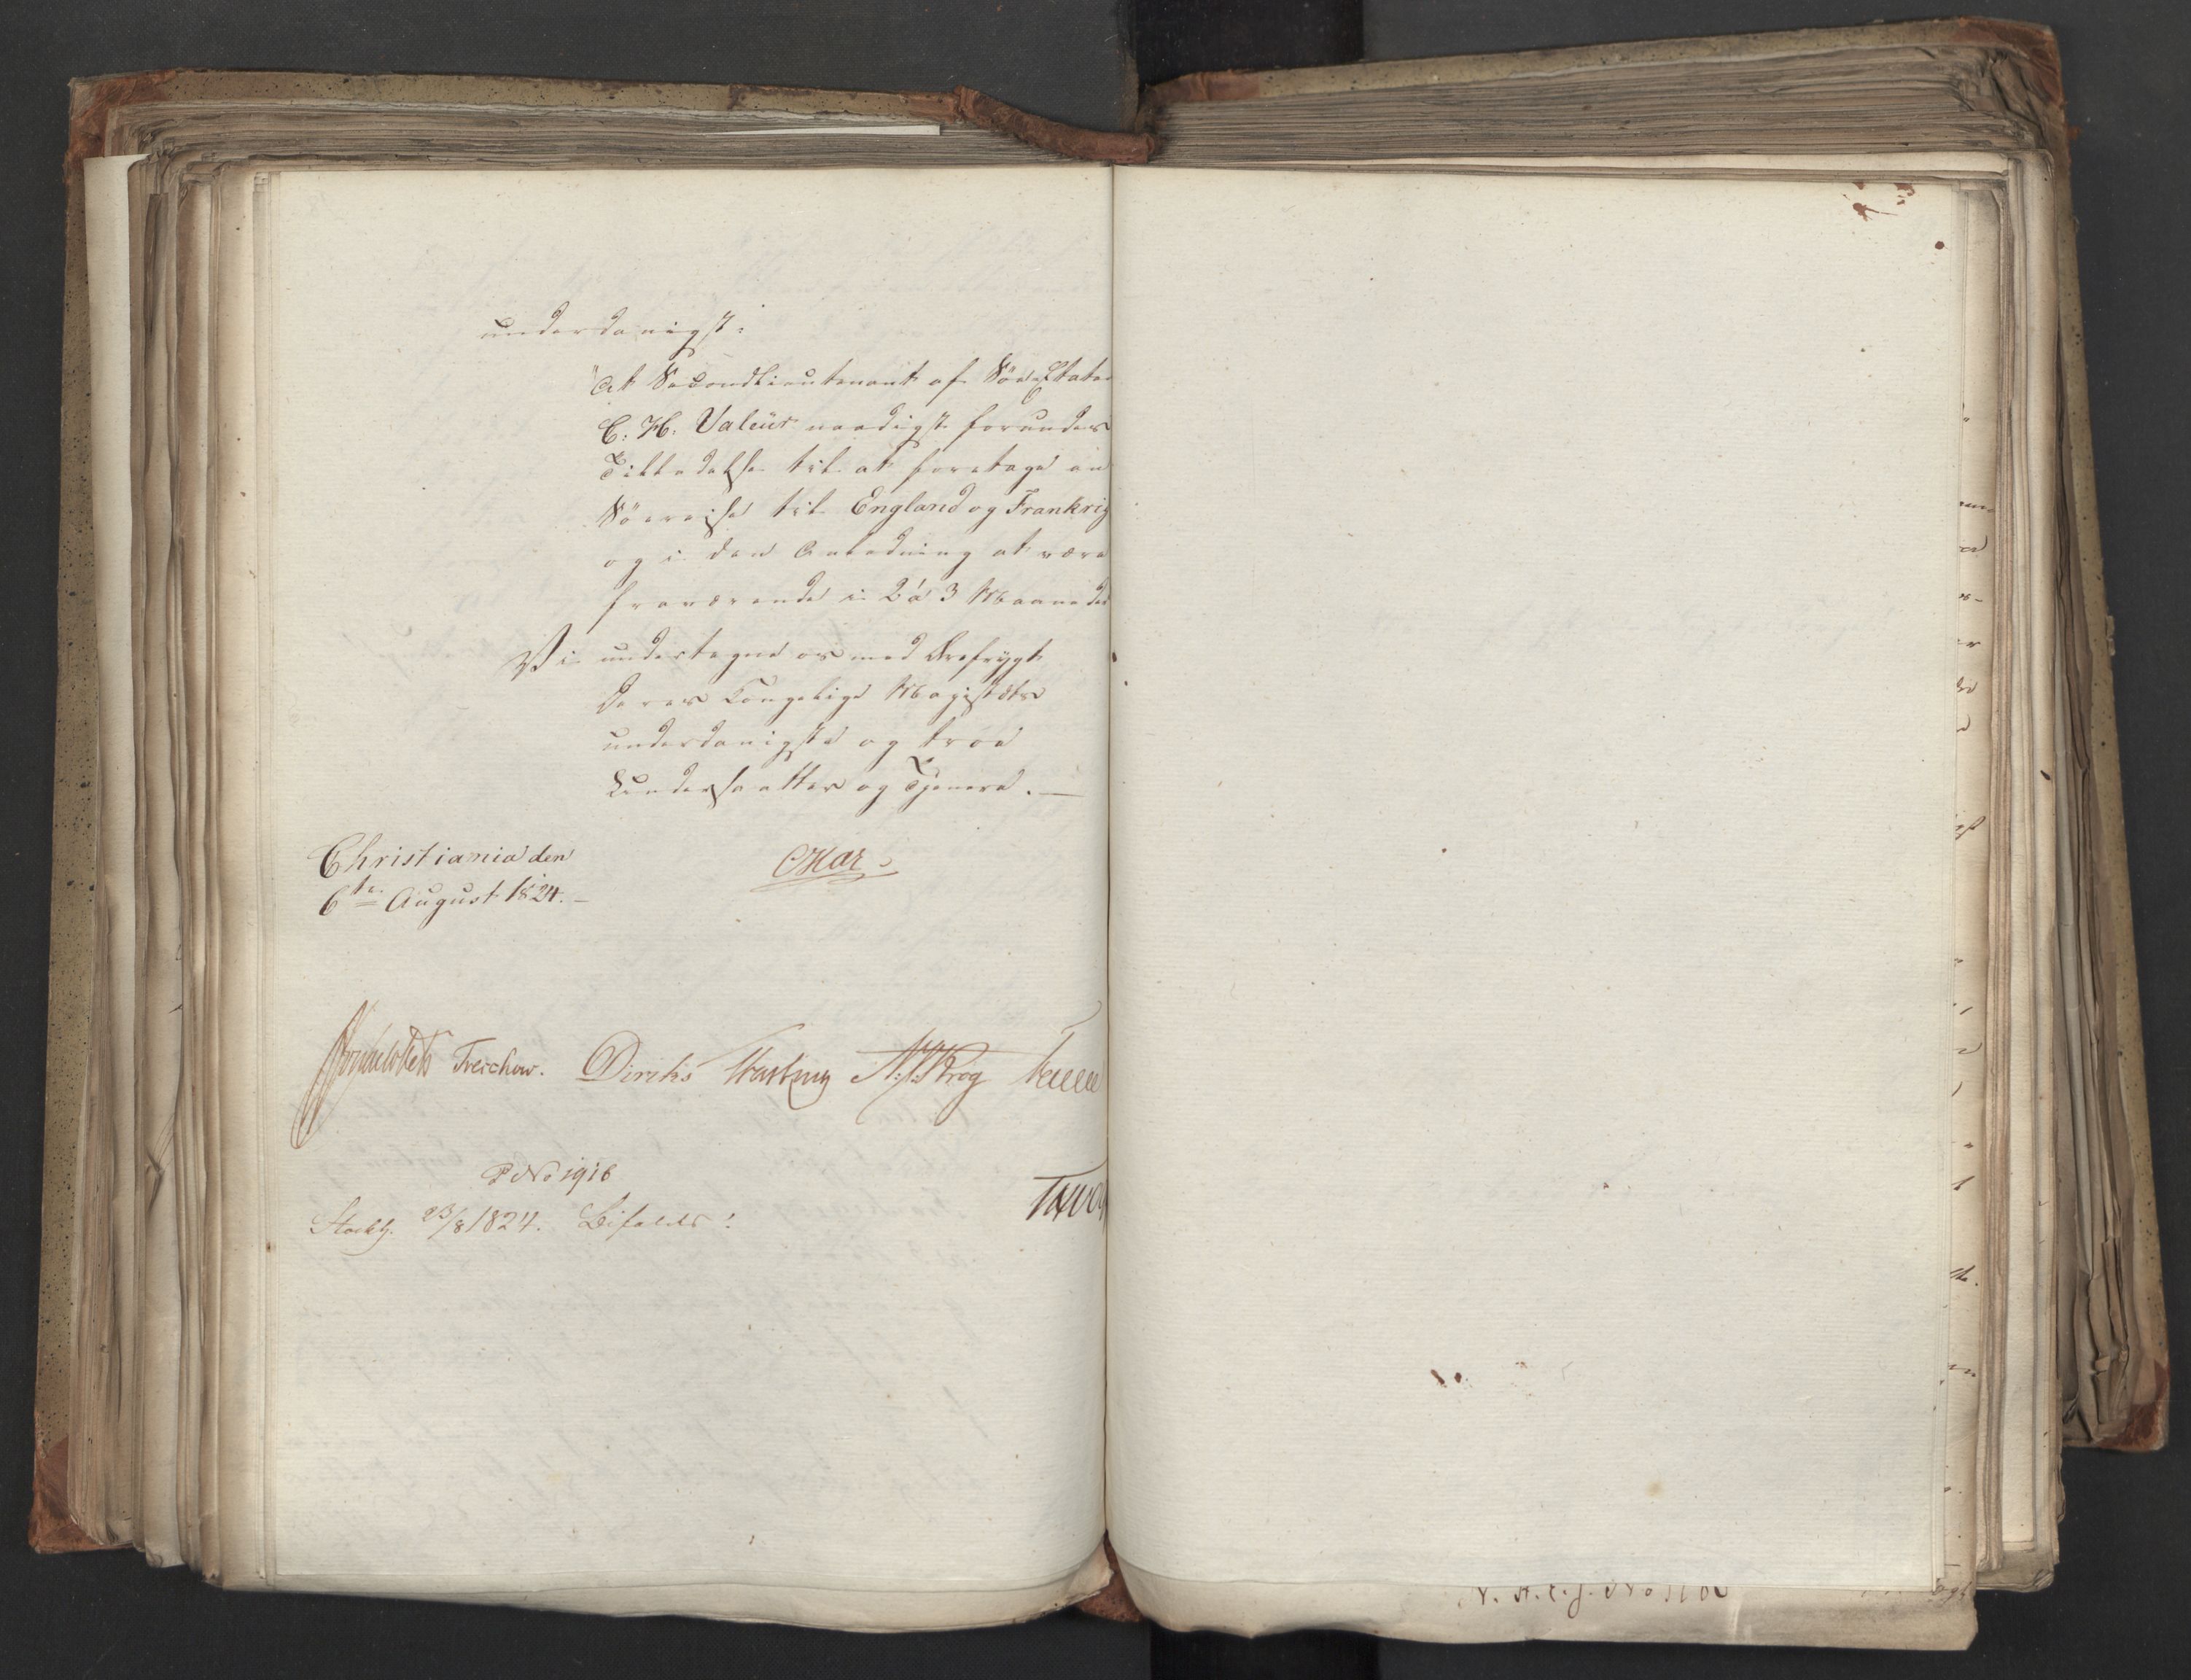 underdanigst:
"At Secondlieutenant af Søe-Etaten
C: H: Valeur naadigst forundes
Tilladelse til at foretage en
Söereise til England og Frankrig
og i den Anledning at være
fraværende i 2 á 3 Maaneder
Vi undertegne os med Ærefrygt
Deres Kongelige Majestæts
underdanigste og troe
Undersaatter og Tjenere. —
Christiania den
6te August 1824. —
Oscar
Treschow. Diriks N: J: Krog
P No 1916
Stockh. 23/8 1824. Bifaldes!